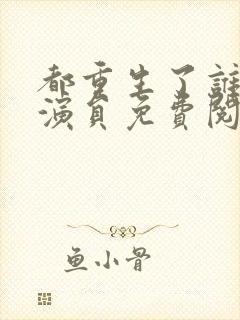 都重生了誰
演員免費閱
鱼小骨